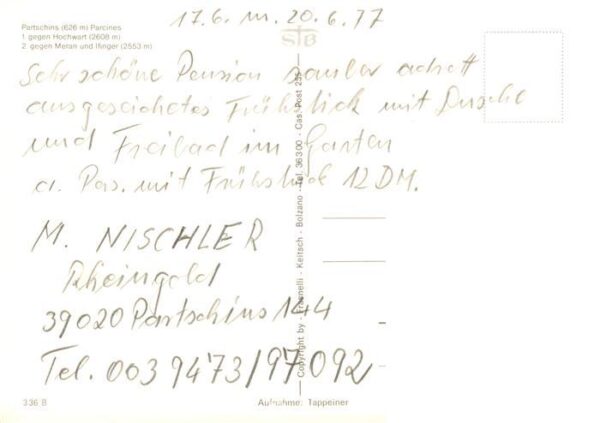 Partschins (626 m) Parcines
1. gegen Hochwart (2608 m)
2. gegen Meran und Ifinger (2553 m)
17.6. m. 20.6.77
STB
Sehr schöne Pension sauber adrett
ausgezeichetes Frühstück mit Dusche
und Freibad im Garten
a. Pers. mit Frühstück 12 DM.
M. NISCHLER
Rheingold
39020 Partschins 144
Tel. 0039473/97092
Copyright by - Fotesnelli - Keitsch - Bolzano - Tel. 36300 - Cas. Post 235
336 B
Aufnahme: Tappeiner